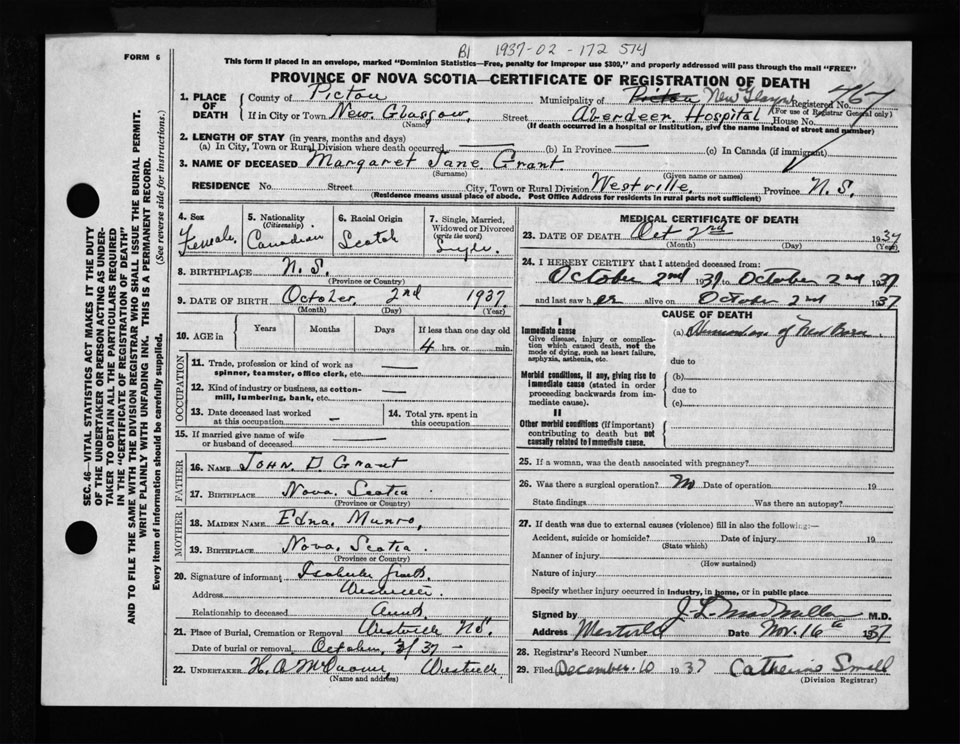 B1 1937-02-172 574
FORM 6
This form if placed in an envelope, marked "Dominion Statistics—Free, penalty for improper use $300," and properly addressed will pass through the mail "FREE"
PROVINCE OF NOVA SCOTIA—CERTIFICATE OF REGISTRATION OF DEATH
1. PLACE OF DEATH
County of Pictou Municipality of Pictou New Glasgow Registered No. 767
(For use of Registrar General only)
If in City or Town New Glasgow, Street Aberdeen Hospital House No.
(Name) (If death occurred in a hospital or institution, give the name instead of street and number)
2. LENGTH OF STAY (in years, months and days)
(a) In City, Town or Rural Division where death occurred — (b) In Province — (c) In Canada (if immigrant)
3. NAME OF DECEASED Margaret Jane Grant
(Surname) (Given name or names)
RESIDENCE No. Street City, Town or Rural Division Westville. Province N.S.
(Residence means usual place of abode. Post Office Address for residents in rural parts not sufficient)
4. Sex Female.
5. Nationality (Citizenship) Canadian
6. Racial Origin Scotch
7. Single, Married, Widowed or Divorced (write the word) Single.
8. BIRTHPLACE N.S.
(Province or Country)
9. DATE OF BIRTH October, 2nd 1937.
(Month) (Day) (Year)
10. AGE in Years Months Days If less than one day old
4 hrs. or min.
OCCUPATION
11. Trade, profession or kind of work as spinner, teamster, office clerk, etc. —
12. Kind of industry or business, as cotton-mill, lumbering, bank, etc. —
13. Date deceased last worked at this occupation —
14. Total yrs. spent in this occupation
15. If married give name of wife or husband of deceased —
FATHER
16. NAME John D Grant
17. BIRTHPLACE Nova Scotia.
(Province or Country)
MOTHER
18. MAIDEN NAME Edna, Munro,
19. BIRTHPLACE Nova, Scotia.
(Province or Country)
20. Signature of informant
Address Westville
Relationship to deceased Aunt
21. Place of Burial, Cremation or Removal Westville N.S.
Date of burial or removal October, 3/37 —
22. UNDERTAKER Westville
(Name and address)
MEDICAL CERTIFICATE OF DEATH
23. DATE OF DEATH Oct 2nd 1937
(Month) (Day) (Year)
24. I HEREBY CERTIFY that I attended deceased from:
October 2nd 1937, to October 2nd 1937
and last saw her alive on October 2nd 1937
CAUSE OF DEATH
I
Immediate cause
Give disease, injury or complication which caused death, not the mode of dying, such as heart failure, asphyxia, asthenia, etc.
(a) of New Born
due to
Morbid conditions, if any, giving rise to immediate cause (stated in order proceeding backwards from immediate cause).
(b)
due to
(c)
II
Other morbid conditions (if important) contributing to death but not causally related to immediate cause.
25. If a woman, was the death associated with pregnancy?
26. Was there a surgical operation? No Date of operation 19
State findings Was there an autopsy?
27. If death was due to external causes (violence) fill in also the following:—
Accident, suicide or homicide? Date of injury 19
(State which)
Manner of injury
(How sustained)
Nature of injury
Specify whether injury occurred in industry, in home, or in public place
Signed by J. L. MacMillan M.D.
Address Westville Date Nov. 16th 1937
28. Registrar's Record Number
29. Filed December 10 1937 Catherine Small
(Division Registrar)
SEC. 46—VITAL STATISTICS ACT MAKES IT THE DUTY
OF THE UNDERTAKER OR PERSON ACTING AS UNDER-
TAKER TO OBTAIN ALL THE PARTICULARS REQUIRED
IN THE "CERTIFICATE OF REGISTRATION OF DEATH"
AND TO FILE THE SAME WITH THE DIVISION REGISTRAR WHO SHALL ISSUE THE BURIAL PERMIT.
WRITE PLAINLY WITH UNFADING INK. THIS IS A PERMANENT RECORD.
Every item of information should be carefully supplied. (See reverse side for instructions.)